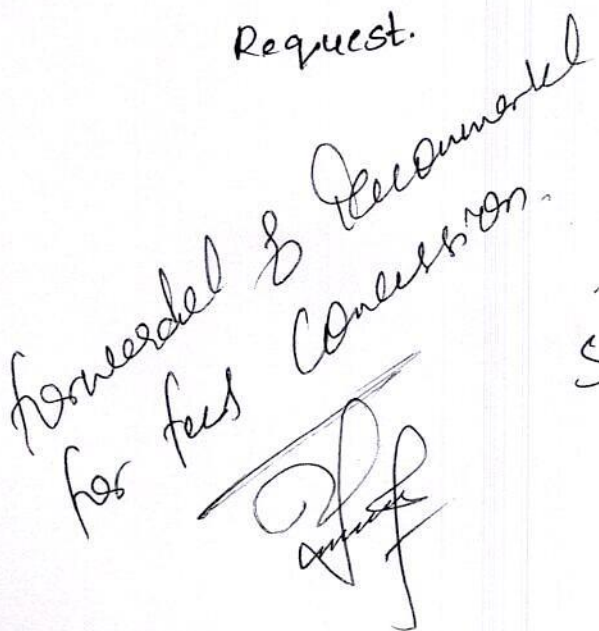 Request.
forwarded & Recommended
for fees concession.
S